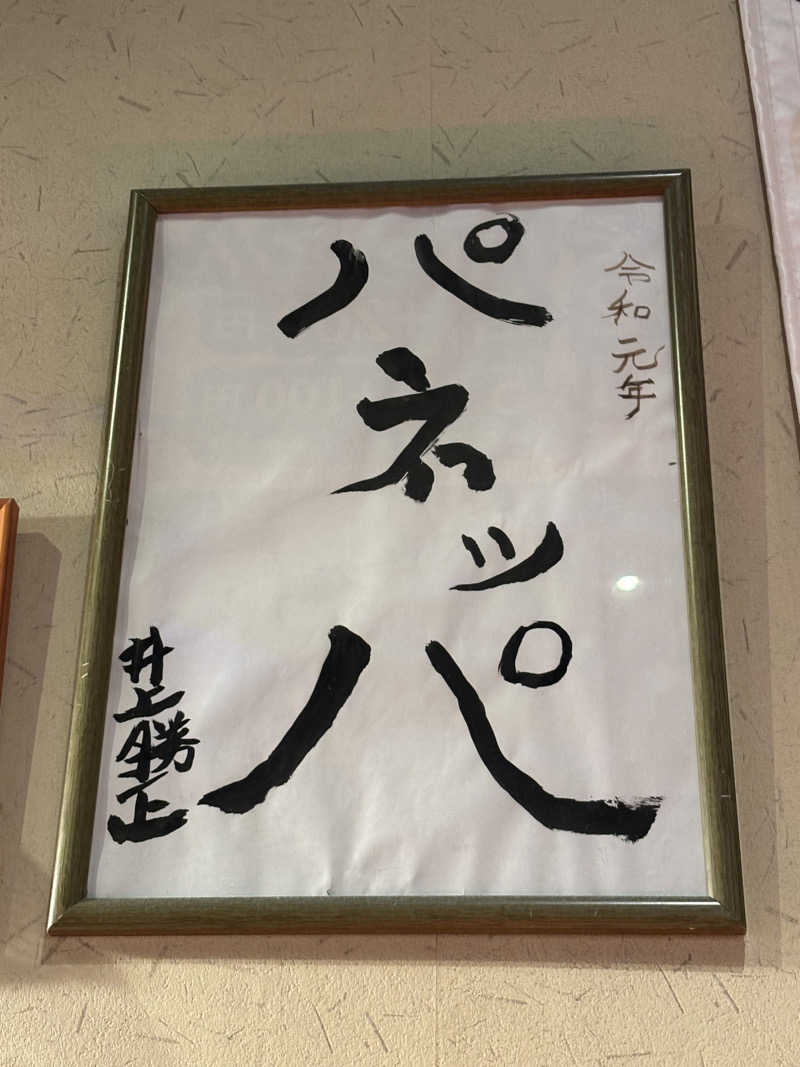 令和元年
パネッパ
井上勝正